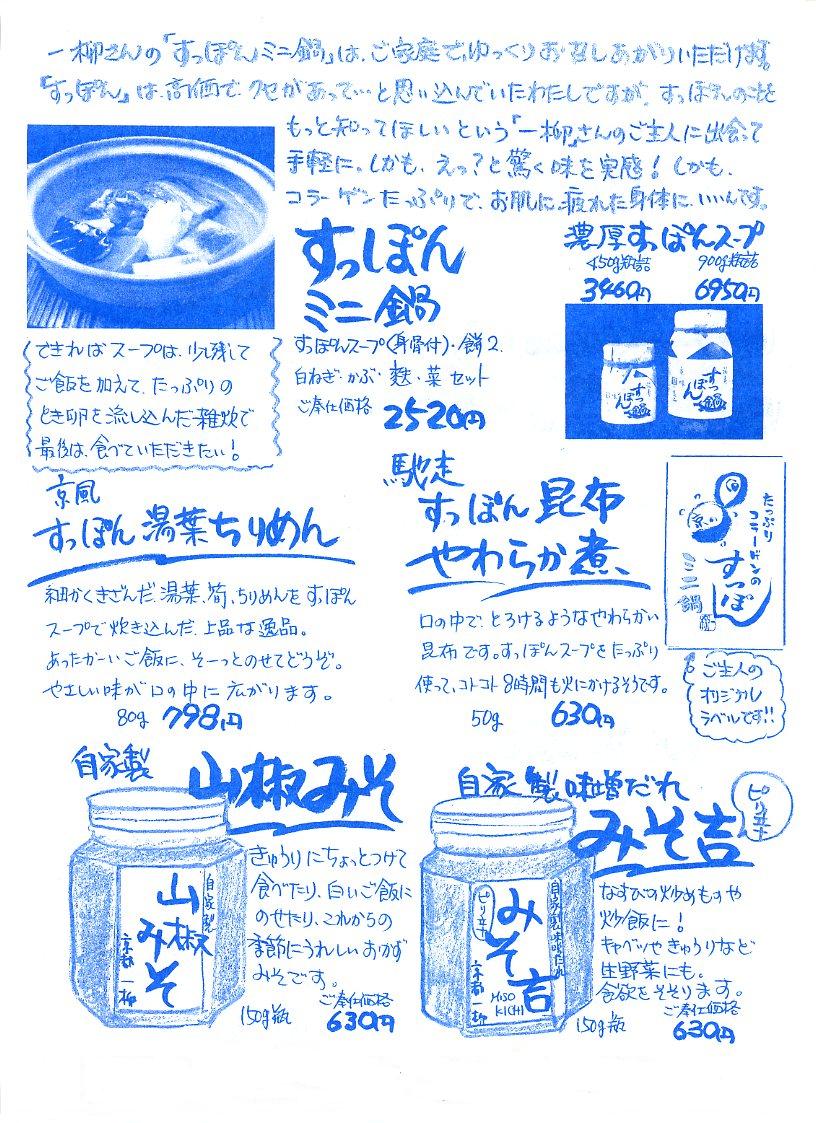 一柳さんの「すっぽんミニ鍋」は、ご家庭でゆっくりお召しあがりいただけます。
「すっぽん」は、高価で、クセがあって…と思い込んでいたわたしですが、すっぽんのことを
もっと知ってほしいという「一柳」さんのご主人に出会って
手軽に。しかも、えっ?と驚く味を実感!しかも、
コラーゲンたっぷりで、お肌に、疲れた身体に、いいんです。
すっぽん
ミニ鍋
すっぽんスープ(身骨付)・餅2、
白ねぎ・かぶ・麩・菜 セット
ご奉仕価格 2520円
濃厚すっぽんスープ
450g瓶詰 900g瓶詰
3460円 6950円
すっぽん鍋
すっぽん鍋
できればスープは、少し残して
ご飯を加えて、たっぷりの
とき卵を流し込んだ雑炊で
最後は、食べていただきたい!
京風
すっぽん湯葉ちりめん
細かくきざんだ、湯葉、筍、ちりめんをすっぽん
スープで炊き込んだ、上品な逸品。
あったかーいご飯に、そーっとのせてどうぞ。
やさしい味が口の中に広がります。
80g 798円
馳走
すっぽん昆布
やわらか煮、
口の中で、とろけるようなやわらかい
昆布です。すっぽんスープをたっぷり
使って、コトコト8時間も火にかけるそうです。
50g 630円
たっぷり
コラーゲンの
すっぽん
ミニ鍋
ご主人の
オリジナル
ラベルです!!
自家製
山椒みそ
自家製
山椒みそ
京都 一柳
きゅうりにちょっとつけて
食べたり、白いご飯に
のせたり、これからの
季節にうれしいおかず
みそです。
ご奉仕価格
150g瓶 630円
自家製味噌だれ
みそ吉
ピリ辛
自家製味噌だれ
ピリ辛
みそ吉
MISO
KICHI
京都 一柳
なすびの炒めものや
炒飯に!
キャベツやきゅうりなど
生野菜にも。
食欲をそそります。
ご奉仕価格
150g瓶 630円